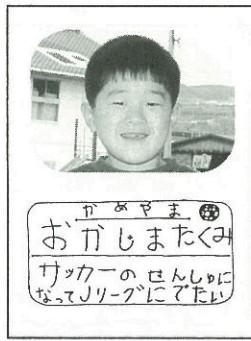 かめやま
おかじまたくみ
サッカーの せんしゅに
なってJリーグにでたい